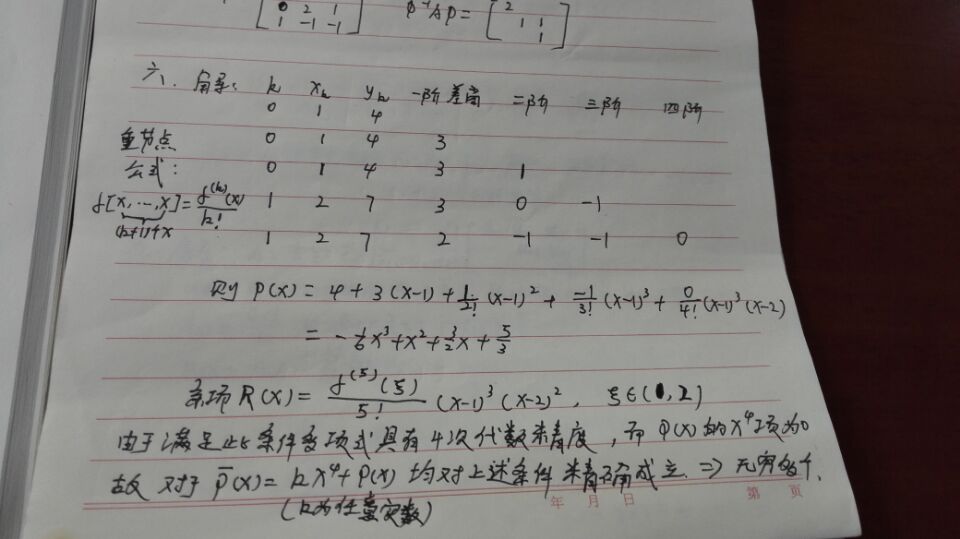 [0 2 1
1 -1 -1] P⁻¹AP = [2
1 1
1]
六、解: k xₖ yₖ 一阶差商 二阶 三阶 四阶
0 1 4
重节点 0 1 4 3
公式: 0 1 4 3 1
f[x, ..., x] = f⁽ᵏ⁾(x)/k! 1 2 7 3 0 -1
(k+1)个x 1 2 7 2 -1 -1 0
则 P(x) = 4 + 3(x-1) + 1/2! (x-1)² + -1/3! (x-1)³ + 0/4! (x-1)³(x-2)
= -1/6 x³ + x² + 3/2 x + 5/3
余项 R(x) = f⁽⁵⁾(ξ)/5! (x-1)³(x-2)², ξ∈(1,2)
由于满足此条件多项式具有4次代数精度,而P(x)的x⁴项为0
故对于 P̄(x) = kx⁴ + P(x) 均对上述条件精确成立 ⇒ 无穷多个.
(k为任意实数)
年 月 日 第 页